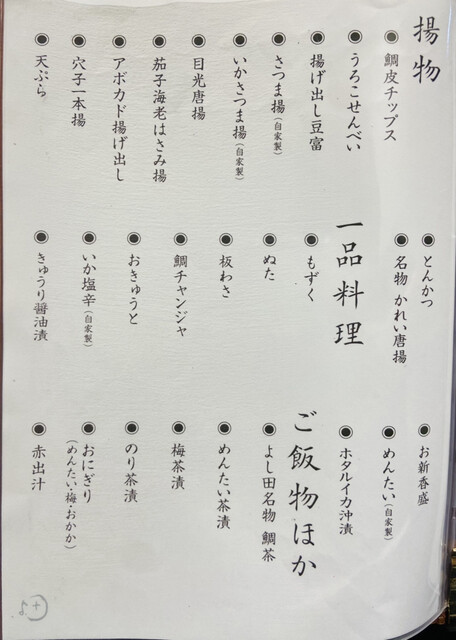 揚物
◉ 鯛皮チップス
◉ うろこせんべい
◉ 揚げ出し豆富
◉ さつま揚(自家製)
◉ いかさつま揚(自家製)
◉ 目光唐揚
◉ 茄子海老はさみ揚
◉ アボカド揚げ出し
◉ 穴子一本揚
◉ 天ぷら
◉ とんかつ
◉ 名物 かれい唐揚
一品料理
◉ もずく
◉ ぬた
◉ 板わさ
◉ 鯛チャンジャ
◉ おきゅうと
◉ いか塩辛(自家製)
◉ きゅうり醤油漬
◉ お新香盛
◉ めんたい(自家製)
◉ ホタルイカ沖漬
ご飯物ほか
◉ よし田名物 鯛茶
◉ めんたい茶漬
◉ 梅茶漬
◉ のり茶漬
◉ おにぎり
(めんたい・梅・おかか)
◉ 赤出汁